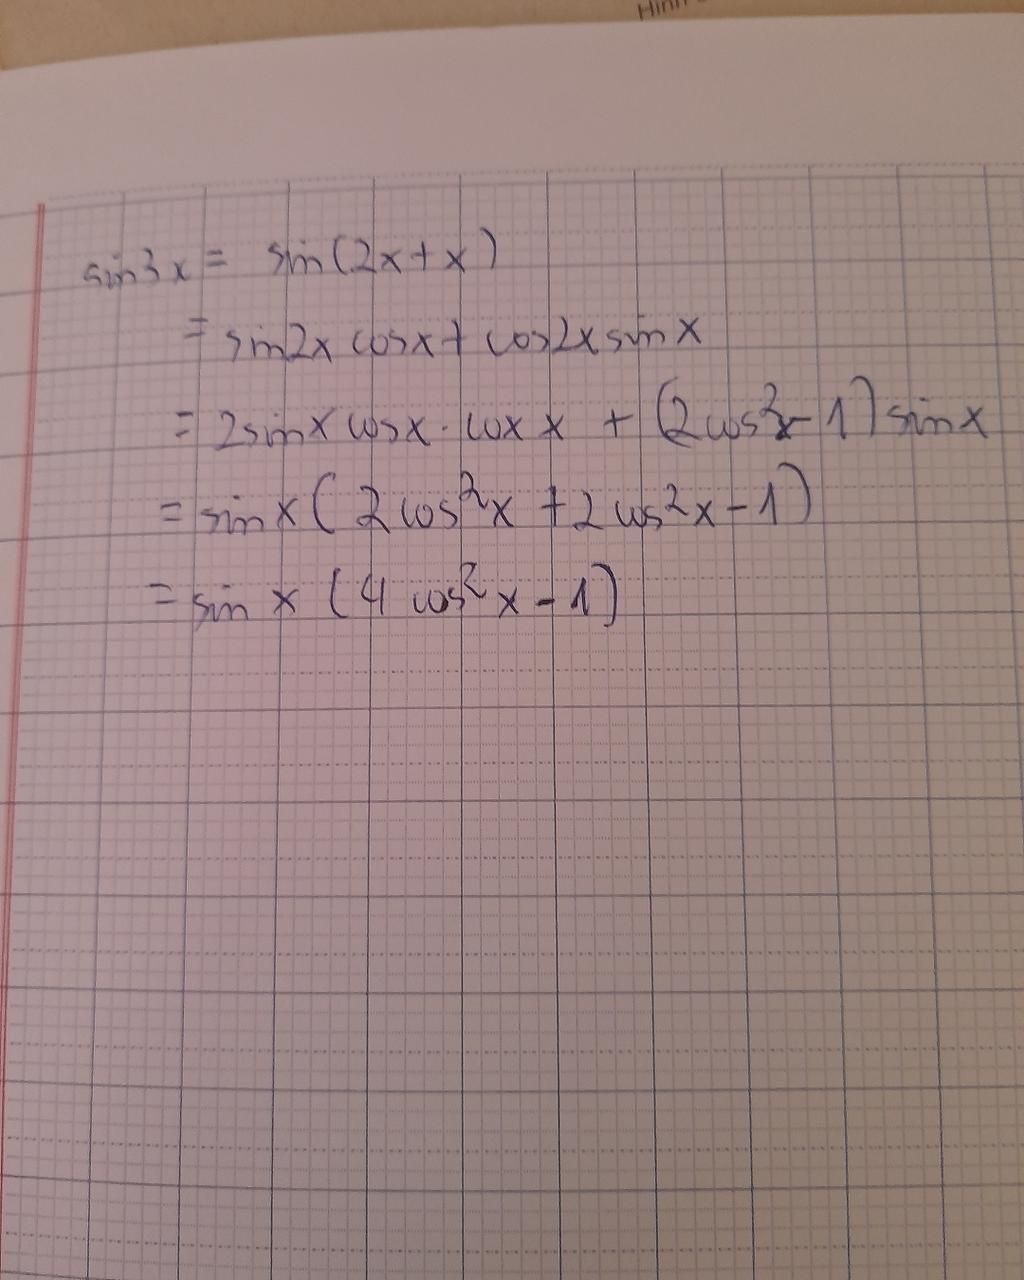 sin3x = sin(2x+x)
= sin2x cosx + cos2x sinx
= 2sinx cosx . cox x + (2cos²x - 1) sinx
= sin x (2 cos²x + 2 cos²x - 1)
= sin x (4 cos²x - 1)